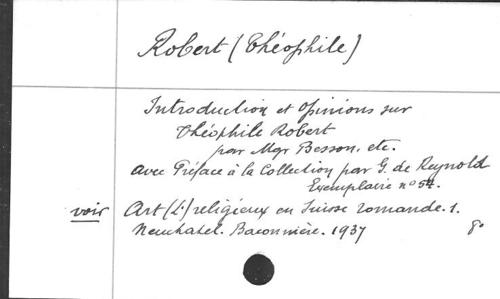 Robert (Théophile)
Introduction et opinions sur
Théophile Robert
par Mgr Besson, etc.
avec Préface à la Collection par G. de Reynold
Exemplaire no 54.
voir Art (L') religieux en Suisse romande. 1.
Neuchatel. Baconnière. 1937 8o